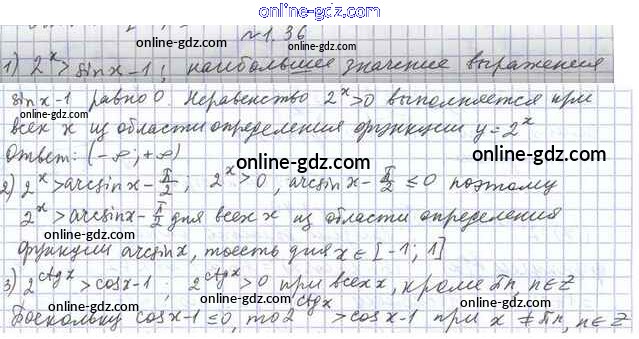 online-gdz.com
online-gdz.com
№1.36
online-gdz.com
online-gdz.com
1) 2^x > sin x - 1; наибольшее значение выражения
sin x - 1 равно 0. Неравенство 2^x > 0 выполняется при
всех x из области определения функции y = 2^x
online-gdz.com
Ответ: (-∞; +∞)
online-gdz.com
online-gdz.com
2) 2^x > arcsin x - π/2; 2^x > 0, arcsin x - π/2 ≤ 0 поэтому
2^x > arcsin x - π/2 для всех x из области определения
online-gdz.com
online-gdz.com
функции arcsin x, тоесть для x ∈ [-1; 1]
3) 2^ctg x > cos x - 1; 2^ctg x > 0 при всех x, кроме πn, n ∈ Z
online-gdz.com
online-gdz.com
Поскольку cos x - 1 ≤ 0, то 2^ctg x > cos x - 1 при x ≠ πn, n ∈ Z
online-gdz.com
online-gdz.com